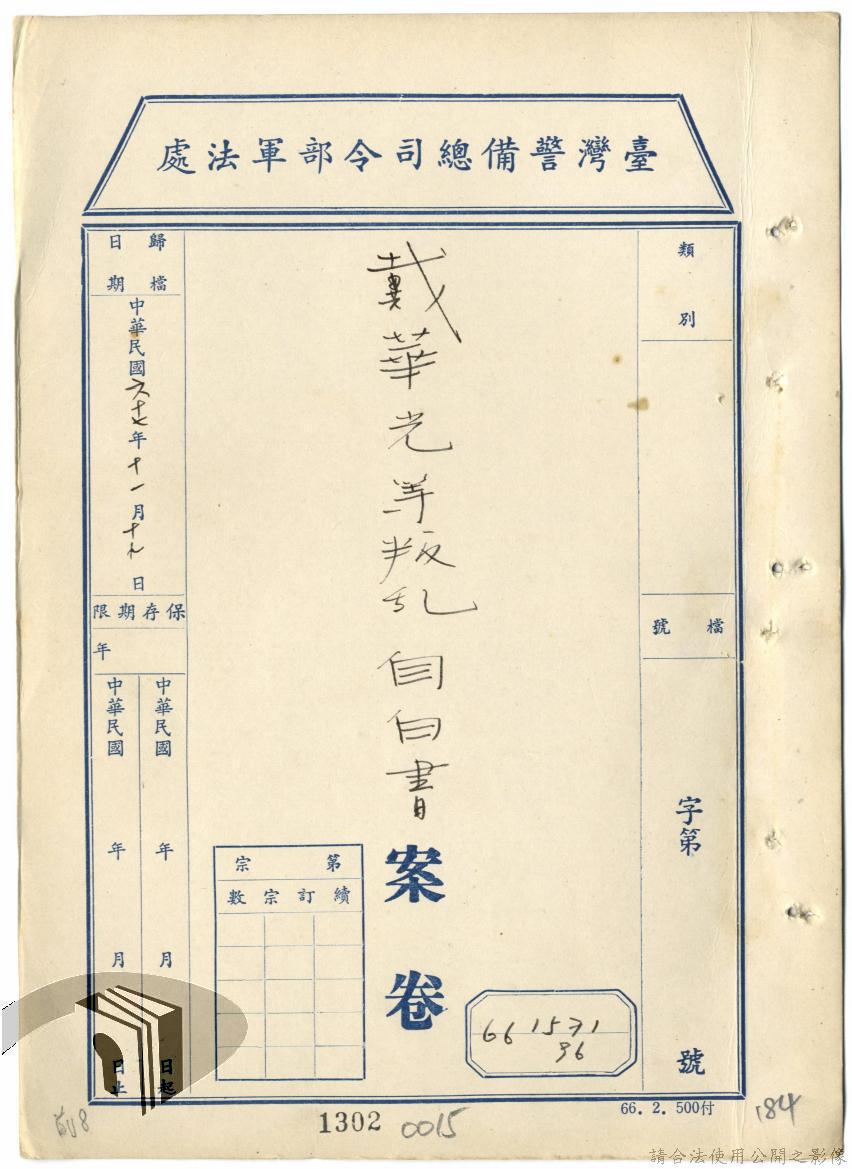 臺灣警備總司令部軍法處
類別
檔號
字第
號
戴華光等叛乱自白書
案卷
661571
96
第宗
續訂宗數
歸檔日期
中華民國六十七年十一月十九日
保存期限
年
中華民國 年 月 日起
中華民國 年 月 日止
66．2．500付
1302
0015
184
請合法使用公開之影像